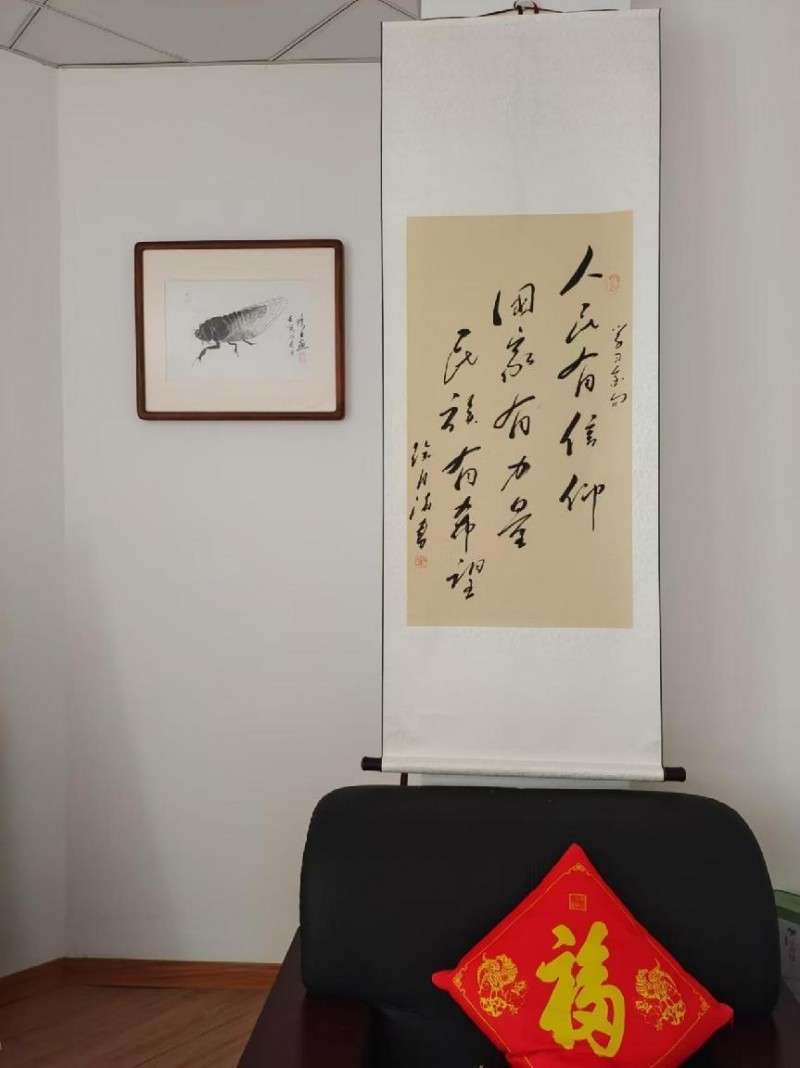 人民有信仰
学习金句
国家有力量
民族有希望
福